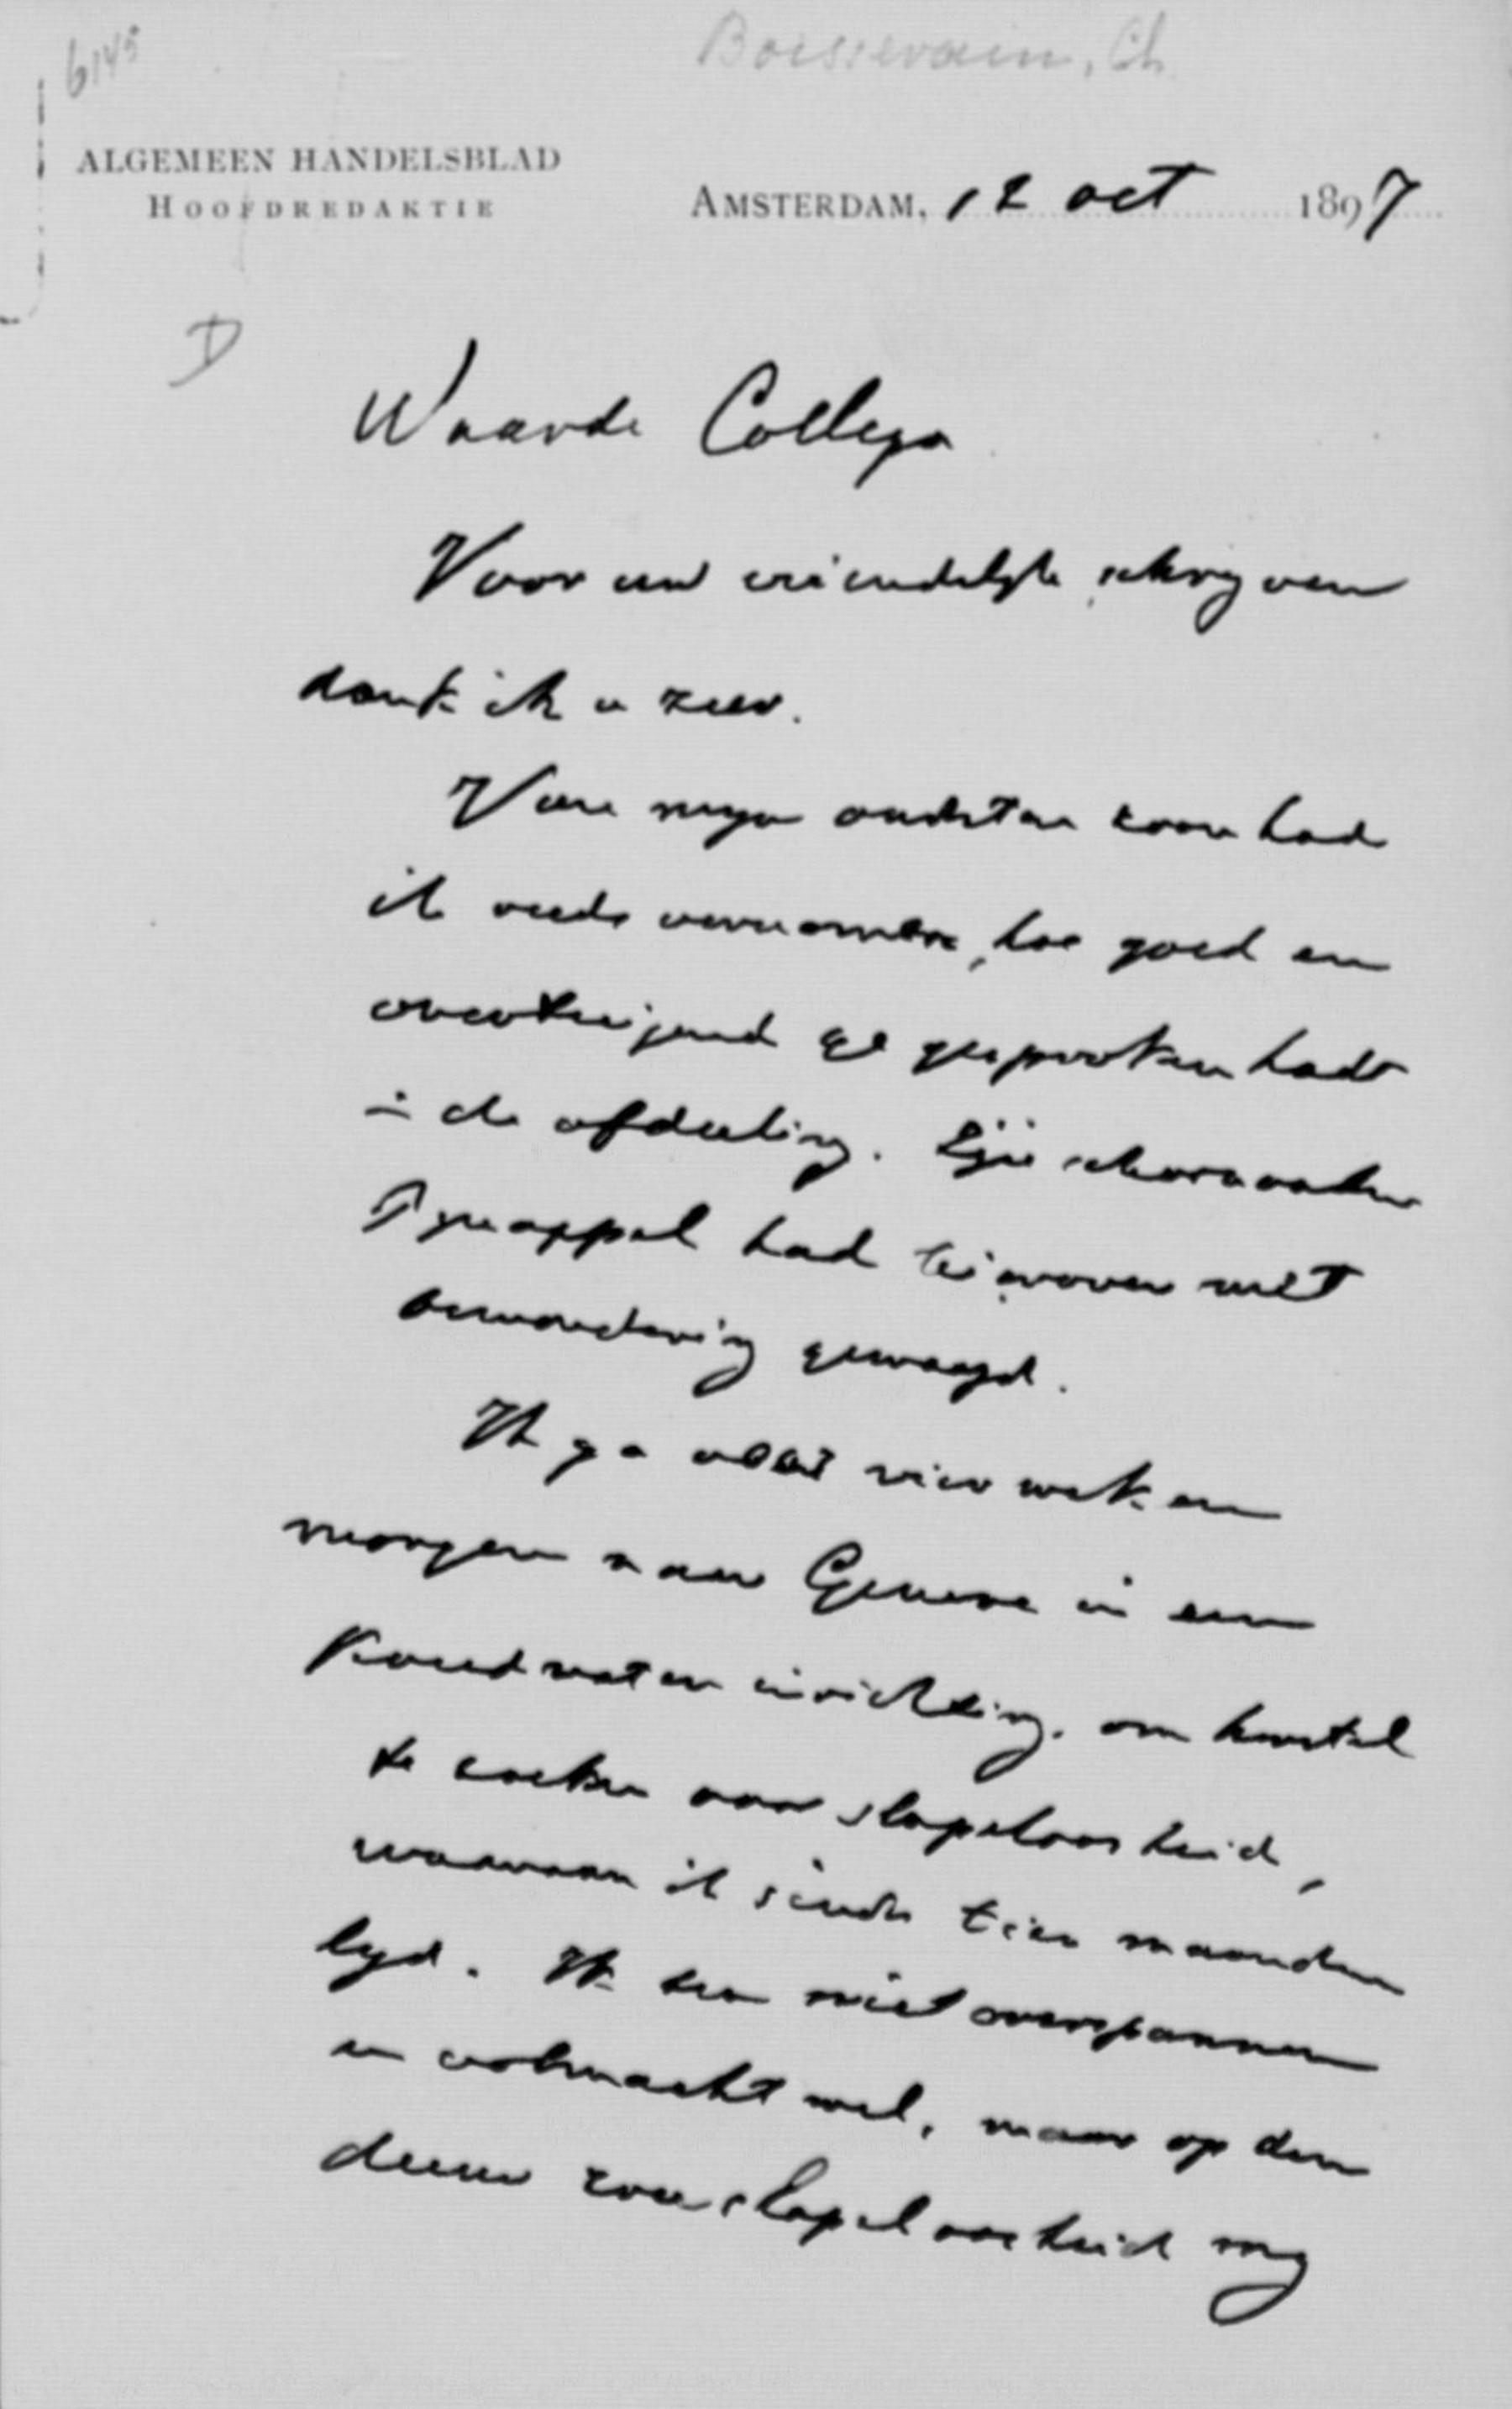 6145
Boissevain, Ch.
ALGEMEEN HANDELSBLAD
HOOFDREDAKTIE
AMSTERDAM, 12 oct 1897
D
Waarde Collega
Voor uw vriendelijk schrijven
dank ik u zeer.
Van mijn oudsten zoon had
ik reeds vernomen, hoe goed en
overtuigend ge gesproken hadt
in de afdeeling. Zijn schoonvader
Pijnappel had er over met
bewondering gewaagd.
Ik ga voor vier weken
morgen naar Geneve in een
Koudwater inrichting. om herstel
te zoeken voor slapeloosheid,
waaraan ik sinds tien maanden
lijd. Ik ben niet overspannen
en volmaakt wel, maar op den
duur zou slapeloosheid mij